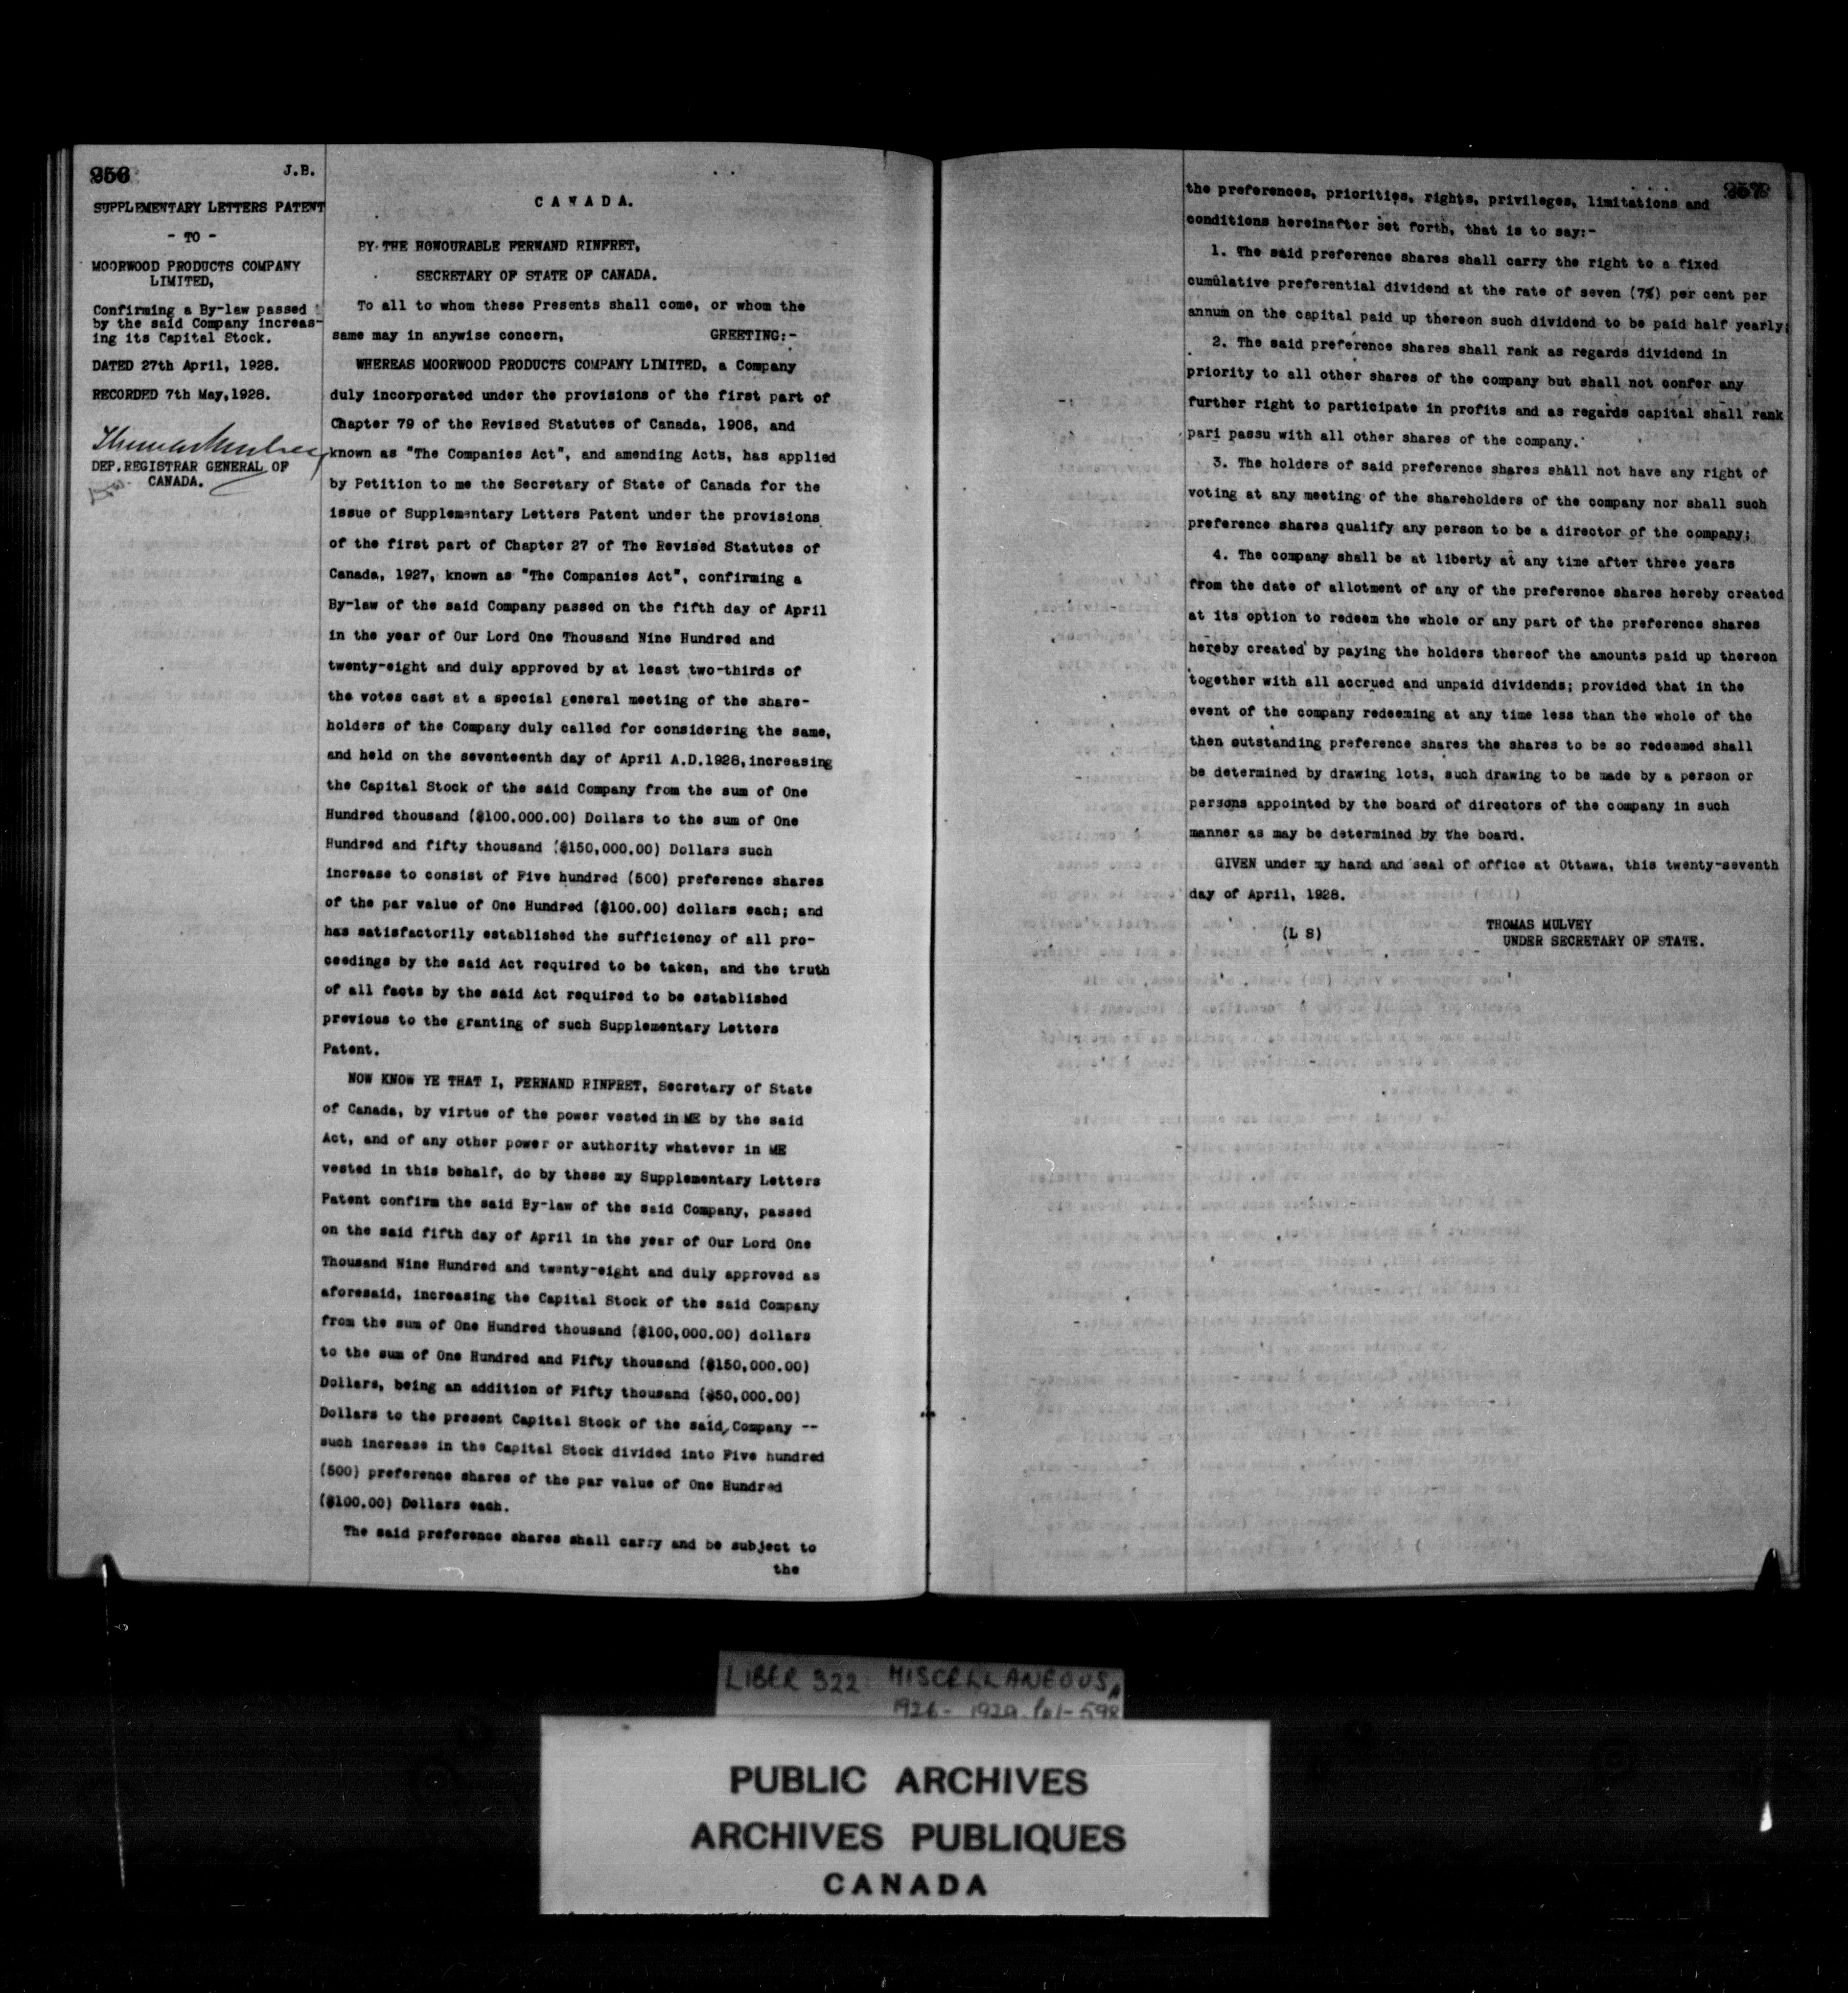 256
J.B.
SUPPLEMENTARY LETTERS PATENT
- TO -
MOORWOOD PRODUCTS COMPANY
LIMITED,
Confirming a By-law passed
by the said Company increas-
ing its Capital Stock.
DATED 27th April, 1928.
RECORDED 7th May,1928.
Thomas Mulvey
DEP.REGISTRAR GENERAL OF
CANADA.
CANADA.
BY THE HONOURABLE FERNAND RINFRET,
SECRETARY OF STATE OF CANADA.
To all to whom these Presents shall come, or whom the
same may in anywise concern, GREETING:-
WHEREAS MOORWOOD PRODUCTS COMPANY LIMITED, a Company
duly incorporated under the provisions of the first part of
Chapter 79 of the Revised Statutes of Canada, 1906, and
known as "The Companies Act", and amending Acts, has applied
by Petition to me the Secretary of State of Canada for the
issue of Supplementary Letters Patent under the provisions
of the first part of Chapter 27 of The Revised Statutes of
Canada, 1927, known as "The Companies Act", confirming a
By-law of the said Company passed on the fifth day of April
in the year of Our Lord One Thousand Nine Hundred and
twenty-eight and duly approved by at least two-thirds of
the votes cast at a special general meeting of the share-
holders of the Company duly called for considering the same,
and held on the seventeenth day of April A.D.1928,increasing
the Capital Stock of the said Company from the sum of One
Hundred thousand ($100.000.00) Dollars to the sum of One
Hundred and fifty thousand ($150,000.00) Dollars such
increase to consist of Five hundred (500) preference shares
of the par value of One Hundred ($100.00) dollars each; and
has satisfactorily established the sufficiency of all pro-
ceedings by the said Act required to be taken, and the truth
of all facts by the said Act required to be established
previous to the granting of such Supplementary Letters
Patent.
NOW KNOW YE THAT I, FERNAND RINFRET, Secretary of State
of Canada, by virtue of the power vested in ME by the said
Act, and of any other power or authority whatever in ME
vested in this behalf, do by these my Supplementary Letters
Patent confirm the said By-law of the said Company, passed
on the said fifth day of April in the year of Our Lord One
Thousand Nine Hundred and twenty-eight and duly approved as
aforesaid, increasing the Capital Stock of the said Company
from the sum of One Hundred thousand ($100,000.00) dollars
to the sum of One Hundred and Fifty thousand ($150,000.00)
Dollars, being an addition of Fifty thousand ($50,000.00)
Dollars to the present Capital Stock of the said Company --
such increase in the Capital Stock divided into Five hundred
(500) preference shares of the par value of One Hundred
($100.00) Dollars each.
The said preference shares shall carry and be subject to
the
the preferences, priorities, rights, privileges, limitations and
conditions hereinafter set forth, that is to say:-
1. The said preference shares shall carry the right to a fixed
cumulative preferential dividend at the rate of seven (7%) per cent per
annum on the capital paid up thereon such dividend to be paid half yearly;
2. The said preference shares shall rank as regards dividend in
priority to all other shares of the company but shall not confer any
further right to participate in profits and as regards capital shall rank
pari passu with all other shares of the company.
3. The holders of said preference shares shall not have any right of
voting at any meeting of the shareholders of the company nor shall such
preference shares qualify any person to be a director of the company;
4. The company shall be at liberty at any time after three years
from the date of allotment of any of the preference shares hereby created
at its option to redeem the whole or any part of the preference shares
hereby created by paying the holders thereof the amounts paid up thereon
together with all accrued and unpaid dividends; provided that in the
event of the company redeeming at any time less than the whole of the
then outstanding preference shares the shares to be so redeemed shall
be determined by drawing lots, such drawing to be made by a person or
persons appointed by the board of directors of the company in such
manner as may be determined by the board.
GIVEN under my hand and seal of office at Ottawa, this twenty-seventh
day of April, 1928.
(L S)
THOMAS MULVEY
UNDER SECRETARY OF STATE.
LIBER 322: MISCELLANEOUS,
PUBLIC ARCHIVES
ARCHIVES PUBLIQUES
CANADA